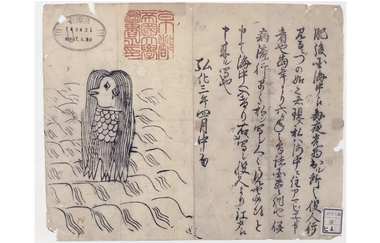 肥後国海中え毎夜光物出ル所之役人行
見るニづの如く者現ス私ハ海中ニ住アマビヱト申
者也当年より六ヶ年之間諸国豊作也併
病流行早々私写シ人々ニ見せ候得と
申て海中へ入けり右写シ役人より江戸え
申来ル写也
弘化三年四月中旬